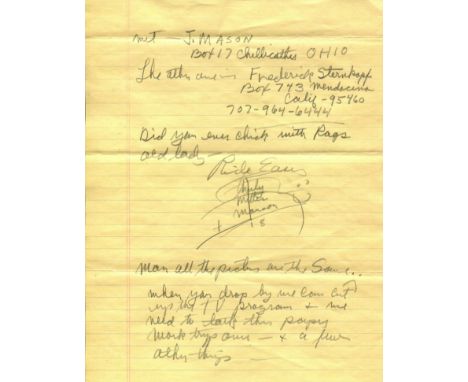 met - J. MASON
Box 17 Chillicothe OHIO
The other one is Frederick Sternkopf
Box 743 Mendocino
Calif - 95460
707-964-6444
Did you ever check with Rags
old lady -
Ride Easy
Manson
man all the pictures are the Same..
when you drop by we can cut
up the TV program + we
need to talk this paper
work trip over - + a few
other things -